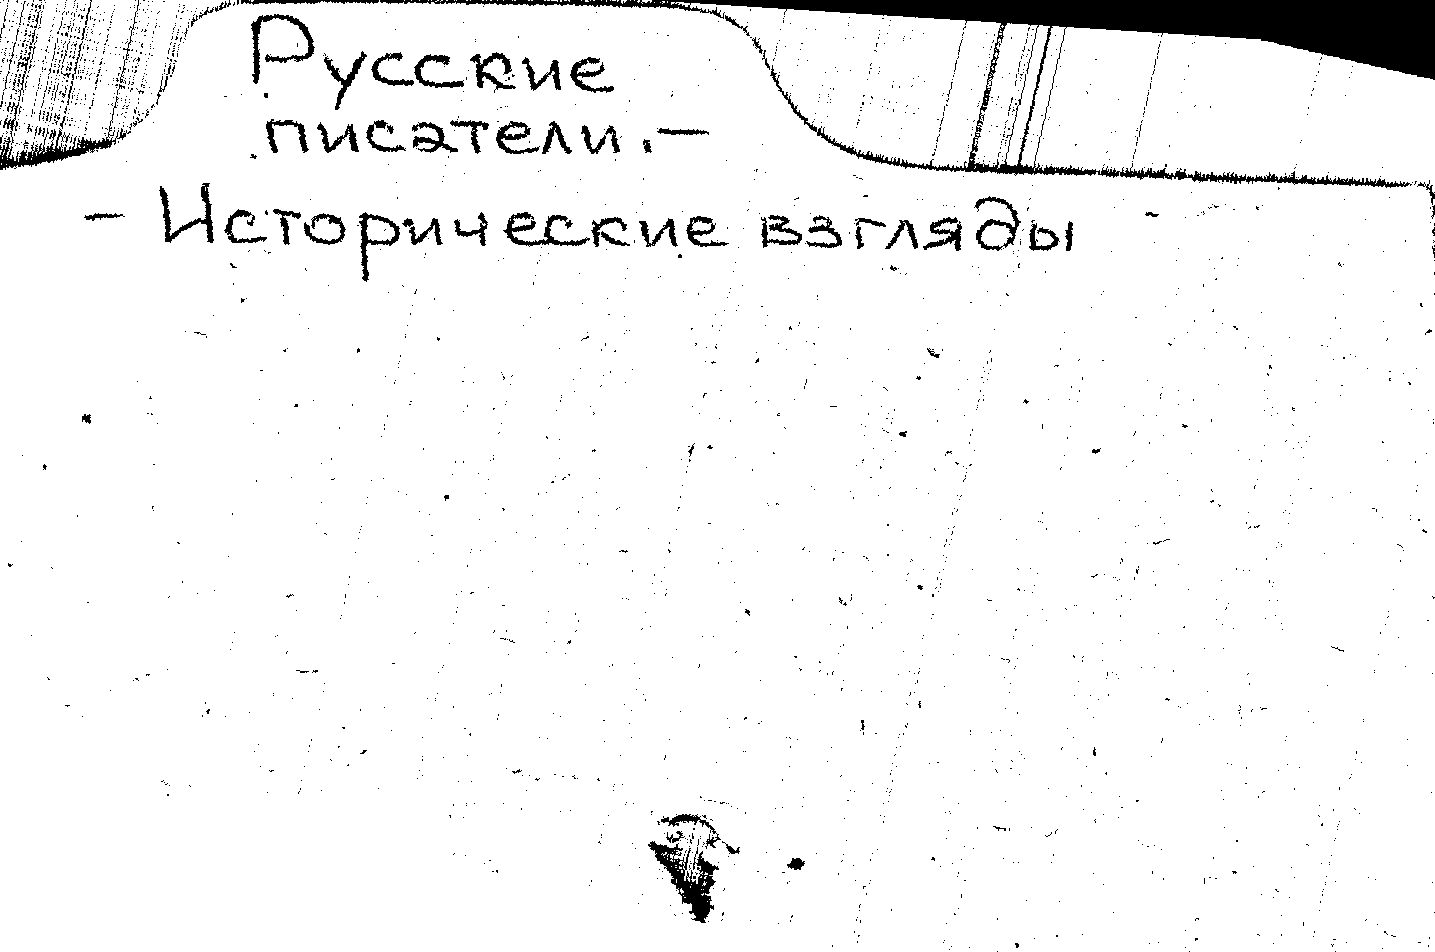 Русские
писатели. —
— Исторические взгляды